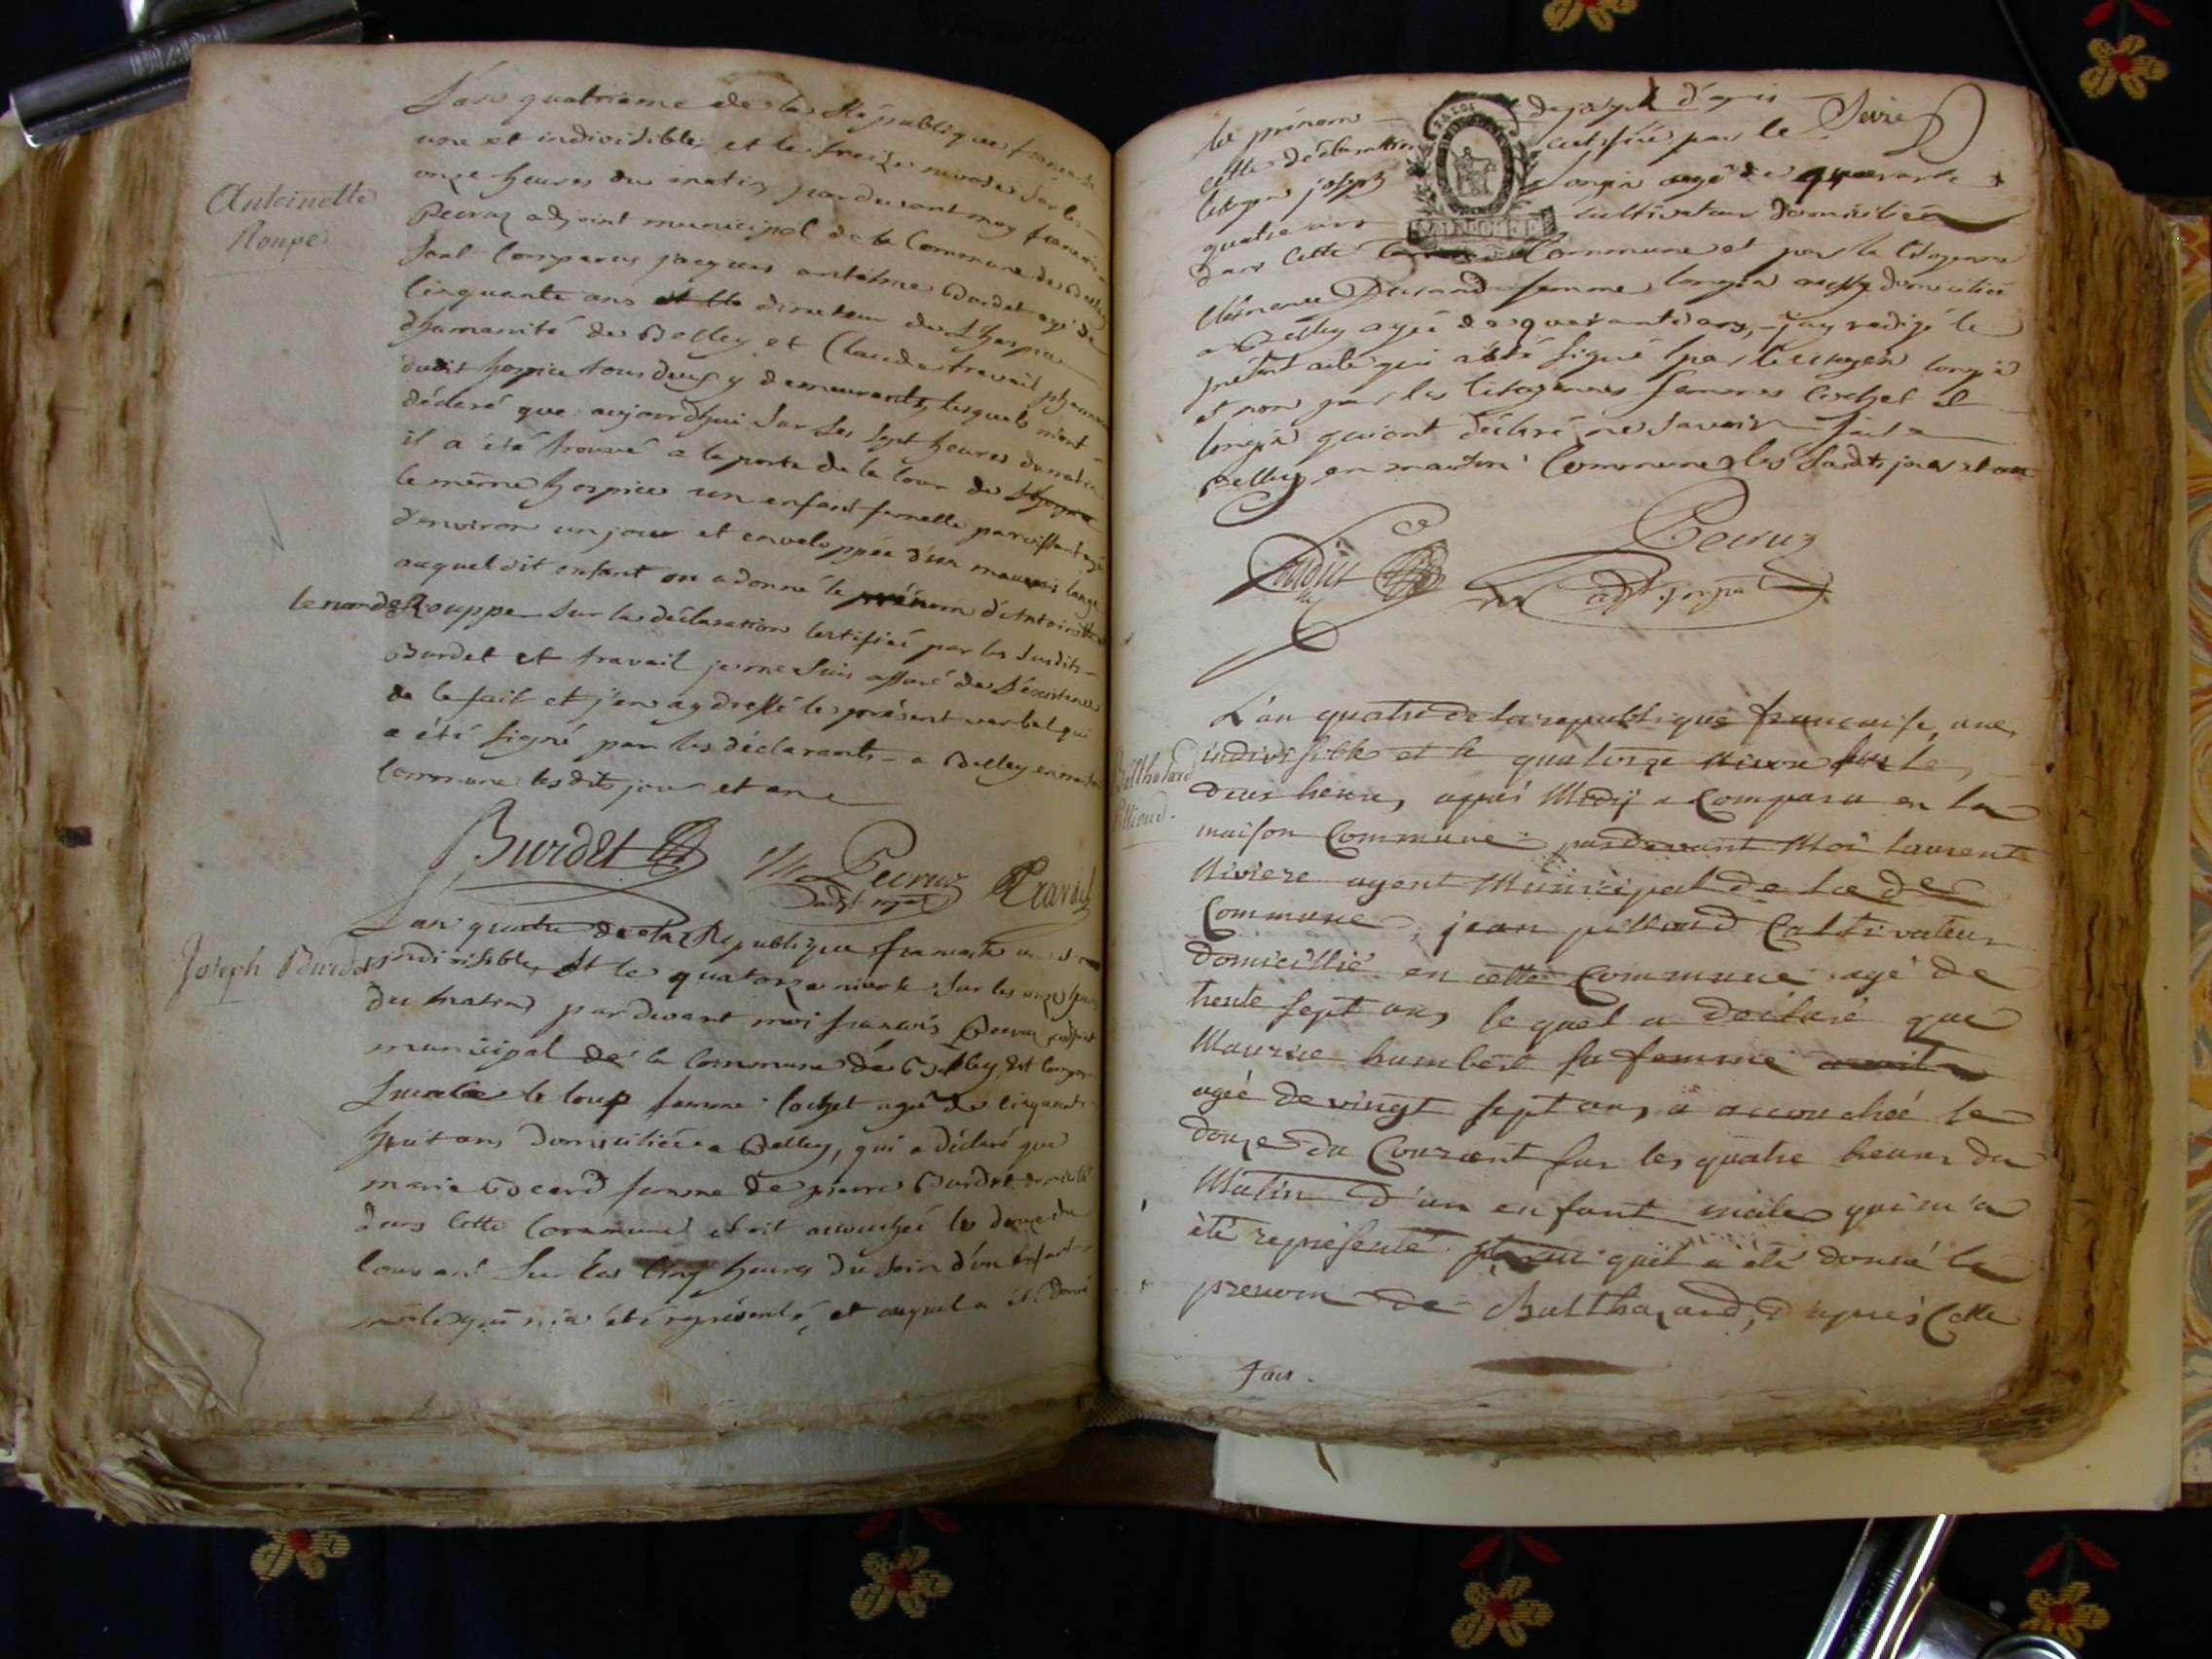 L'an quatrieme de la République francaise
une et indivisible et le treize nivose sur les
onze heures du matin pardevant moy francois
Pecruz adjoint municipal de la Commune de Belley
Sont Comparus jacques antelme Burdet agé de
Cinquante ans directeur de L'hospice
d'humanité de Belley et Claude travail
dudit hospice tous deux y demeurants, lesquels m'ont
déclaré que aujourdhui sur les sept heures du matin
il a été trouvé a la porte de la Cour de
le même hospice un enfant femelle paroissant agé
d'environ un jour et enveloppée d'un mauvais lange
auquel dit enfant on a donné le prénom d'Antoinette
le nom de Rouppe sur la déclaration Certifiée par les susdits
Burdet et travail je me suis assuré de l'éxistence
de le fait et j'en ay dressé le présent verbal qui
a été signé par les déclarants a Belley en maison
Commune les dits jour et an
Antoinette
Roupe
Burdet Pecruz Travail
adjt
Joseph Burdet
L'an quatre de la République francaise une
indivisible, Et le quatorze nivose sur les onze heures
du matin pardevant moi francois Pecruz adjoint
municipal de la Commune de Belley, Est Comparu
le loup femme Cochet agée de Cinquante
huit ans domiciliée a Belley, qui a déclaré que
marie Bocard femme de pierre Burdet domicilié
dans Cette Commune etoit accouchée le douze du
Courant sur les Cinq heures du soir d'un enfant
mâle qui m'a été représenté, et auquel a été donné
le prénom de joseph d'apres
Cette déclaration certifiée par le
Citoyen joseph Longin agé de quarante
quatre ans cultivateur domicilié
dans Cette Commune et par la Citoyenne
Clémence Durand femme longin aussy domiciliée
a Belley agée de quarante ans, j'ay redigé le
présent acte qui a été signé par le Citoyen longin
et non par les Citoyennes femmes Cochet et
longin qui ont déclaré ne savoir faire
Belley en maison Commune les susdits jour et an
Pecruz
adjt
Balthazard
Pilliond.
L'an quatre de la republique francaise, une,
indivisible et le quatorze nivose sur les
deux heures, après Midÿ a Comparu en la
maison Commune pardevant Moi Laurent
Riviere agent Municipal de la de
Commune, jean Cultivateur
domicillié en cette Commune agé de
trente sept ans, lequel a déclaré que
Maurise humbert sa femme
agée de vingt sept ans, a accouchée le
douze du Courant sur les quatre heures du
Matin d'un enfant mâle qui m'a
été représenté quel a été donné le
prenom de Balthazard, d'après Cette